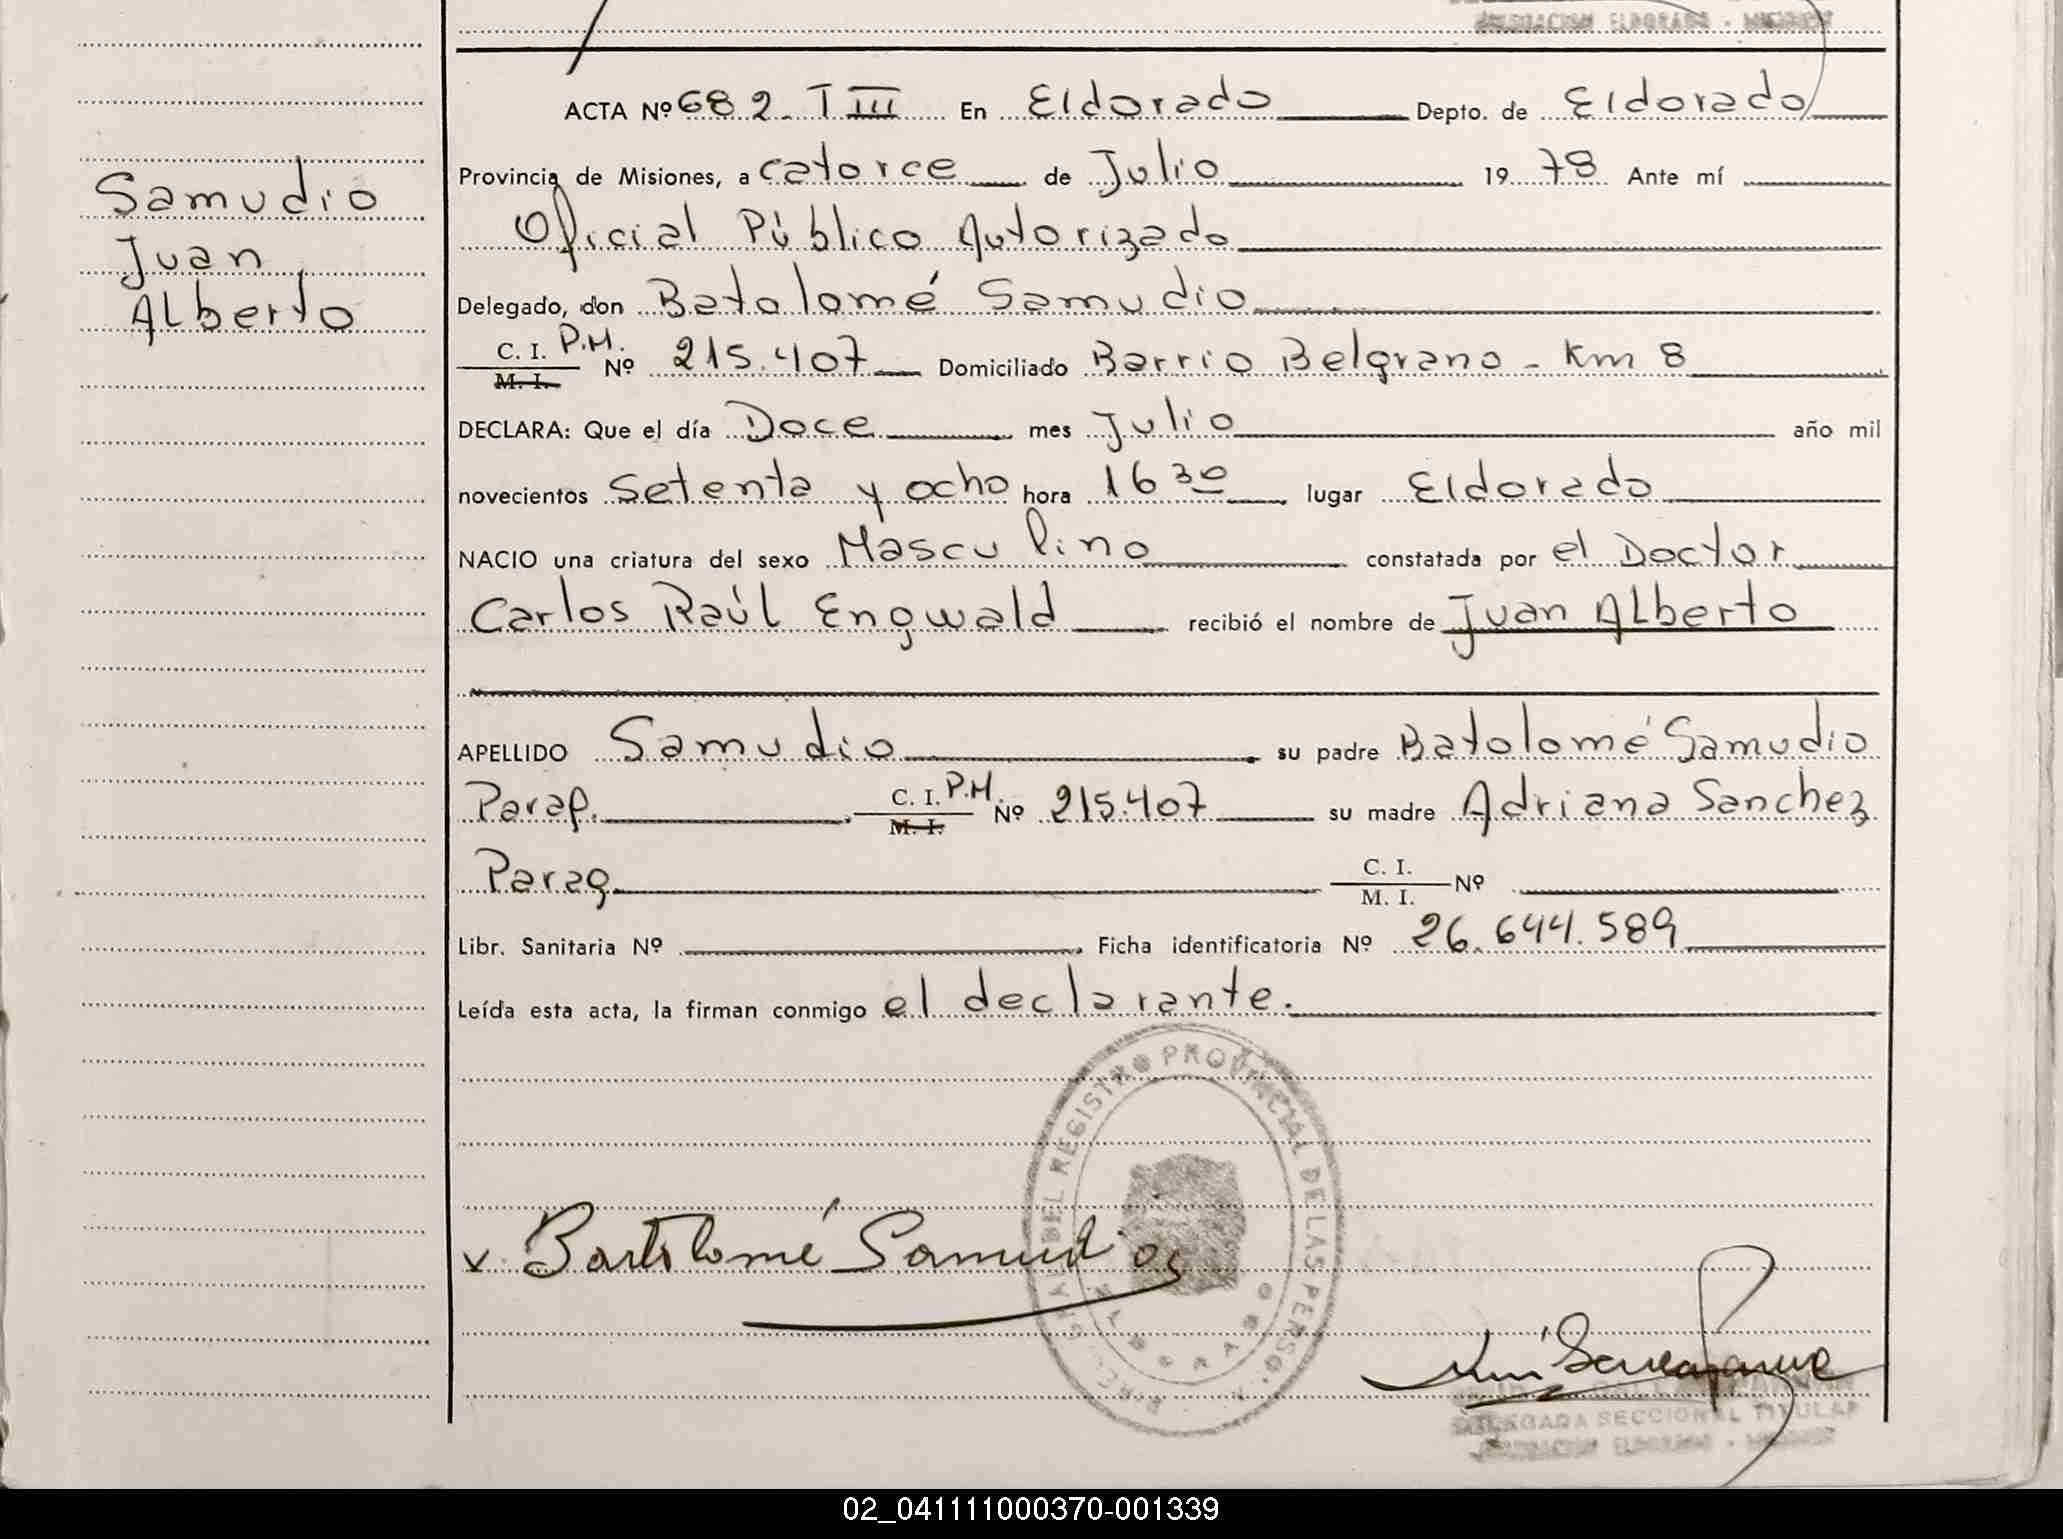 ELDORADO
ACTA Nº 682 T III En Eldorado Depto. de Eldorado
Provincia de Misiones, a catorce de Julio 1978 Ante mí
Oficial Público Autorizado
Delegado, don Batolomé Samudio
C. I. P.M.
M. I. Nº 215.407 Domiciliado Barrio Belgrano - Km 8
DECLARA: Que el día Doce mes Julio año mil
novecientos setenta y ocho hora 16 30 lugar Eldorado
NACIO una criatura del sexo Masculino constatada por el Doctor
Carlos Raúl Engwald recibió el nombre de Juan Alberto
APELLIDO Samudio su padre Batolomé Samudio
Parag. C. I. P.M. Nº 215.407 su madre Adriana Sanchez
M. I.
Parag C. I. Nº
M. I.
Libr. Sanitaria Nº Ficha identificatoria Nº 26.644.589
Leída esta acta, la firman conmigo el declarante.
Samudio
Juan
Alberto
DEL REGISTRO PROVINCIAL DE LAS PERSO
ELDORADO
Bartolomé Samudio
DELEGADA SECCIONAL TITULAR
02_041111000370-001339